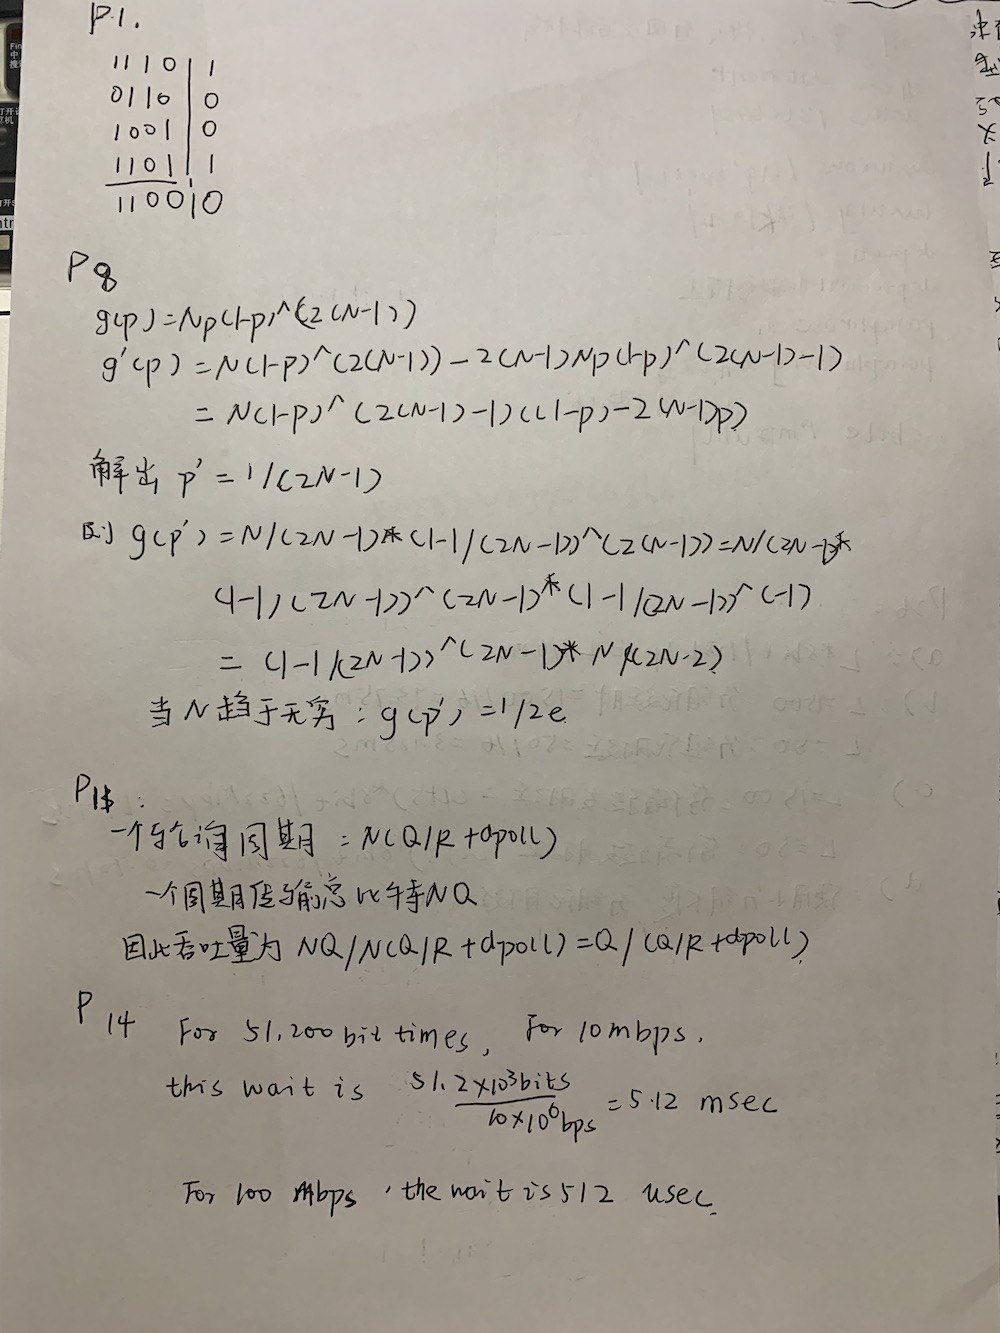 P1.
1110|1
0110|0
1001|0
1101|1
1100|0
P8
g(p)=Np(1-p)^(2(N-1))
g'(p)=N(1-p)^(2(N-1))-2(N-1)Np(1-p)^(2(N-1)-1)
=N(1-p)^(2(N-1)-1)((1-p)-2(N-1)p)
解出 p'=1/(2N-1)
则 g(p')=N/(2N-1)*(1-1/(2N-1))^(2(N-1))=N/(2N-1)*
(1-1/(2N-1))^(2N-1)*(1-1/(2N-1))^(-1)
=(1-1/(2N-1))^(2N-1)*N/(2N-2)
当N趋于无穷:g(p')=1/2e
一个轮询周期=N(Q/R+dpoll)
一个周期传输总比特NQ
因此吞吐量为 NQ/N(Q/R+dpoll)=Q/(Q/R+dpoll)
P14 For 51,200 bit times, For 10mbps,
this wait is 51.2×10^3bits/10×10^6bps=5.12 msec
For 100 Mbps, the wait is 512 usec.